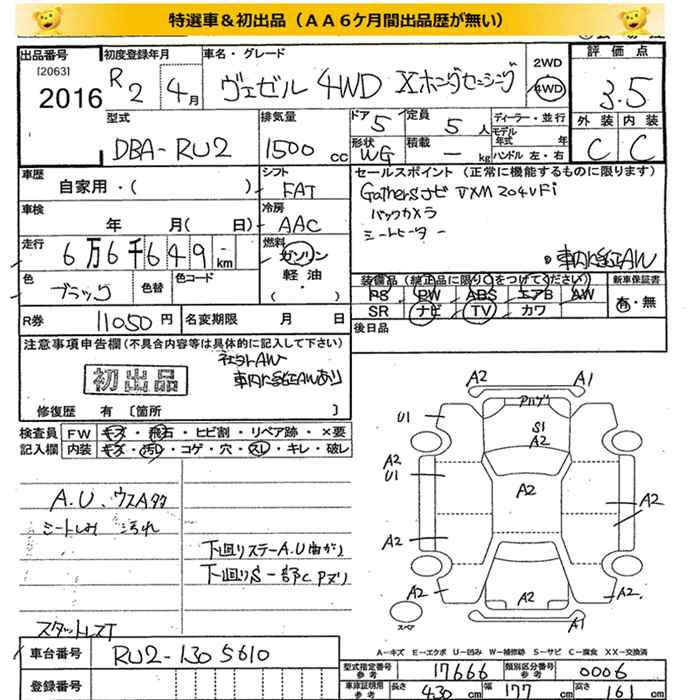 特選車&初出品(AA6ケ月間出品歴が無い)
出品番号 初度登録年月 車名・グレード 2WD 評価点
[2063]
2016 R2 4月 ヴェゼル 4WD Xホンダセンシング 4WD 3.5
型式 排気量 ドア 5 定員 5人 ディーラー・並行 外装 内装
DBA-RU2 1500cc 形状 WG 積載 — kg モデル年式 年 C C
ハンドル 左・右
車歴 シフト セールスポイント(正常に機能するものに限ります)
自家用・( ) FAT Gathersナビ VXM204VFi
車検 冷房 バックカメラ
年 月( 日) AAC シートヒーター
走行 燃料 車内に純正AW
6万6千649km ガソリン
軽油
色 色替 色コード ( ) 装備品(純正品に限り○をつけてください) 新車保証書
ブラック PS PW ABS エアB AW 有・無
R券 11050円 名変期限 月 日 SR ナビ TV カワ
後日品
注意事項申告欄(不具合内容等は具体的に記入して下さい)
社外AW
初出品 車内に純正AWあり
修復歴 有〔箇所 〕
検査員 FW キズ・飛石・ヒビ割・リペア跡・×要
記入欄 内装 キズ・汚レ・コゲ・穴・スレ・キレ・破レ
A.U.ウスAタタ
シートしみ 汚れ
下廻りステーA.U曲がり
下廻りS一部CPズリ
スタットレスT
A2 A1
アルゲ
U1 S1
A2
A2 U1 A2 A2
A2
A2 A2 A2
スペア A1
A-キズ E-エクボ U-凹み W-補修跡 S-サビ C-腐食 XX-交換済
車台番号 RU2-1305610 型式指定番号 17666 類別区分番号 0006
登録番号 車庫証明用参考 長さ 430cm 幅 177cm 高さ 161cm